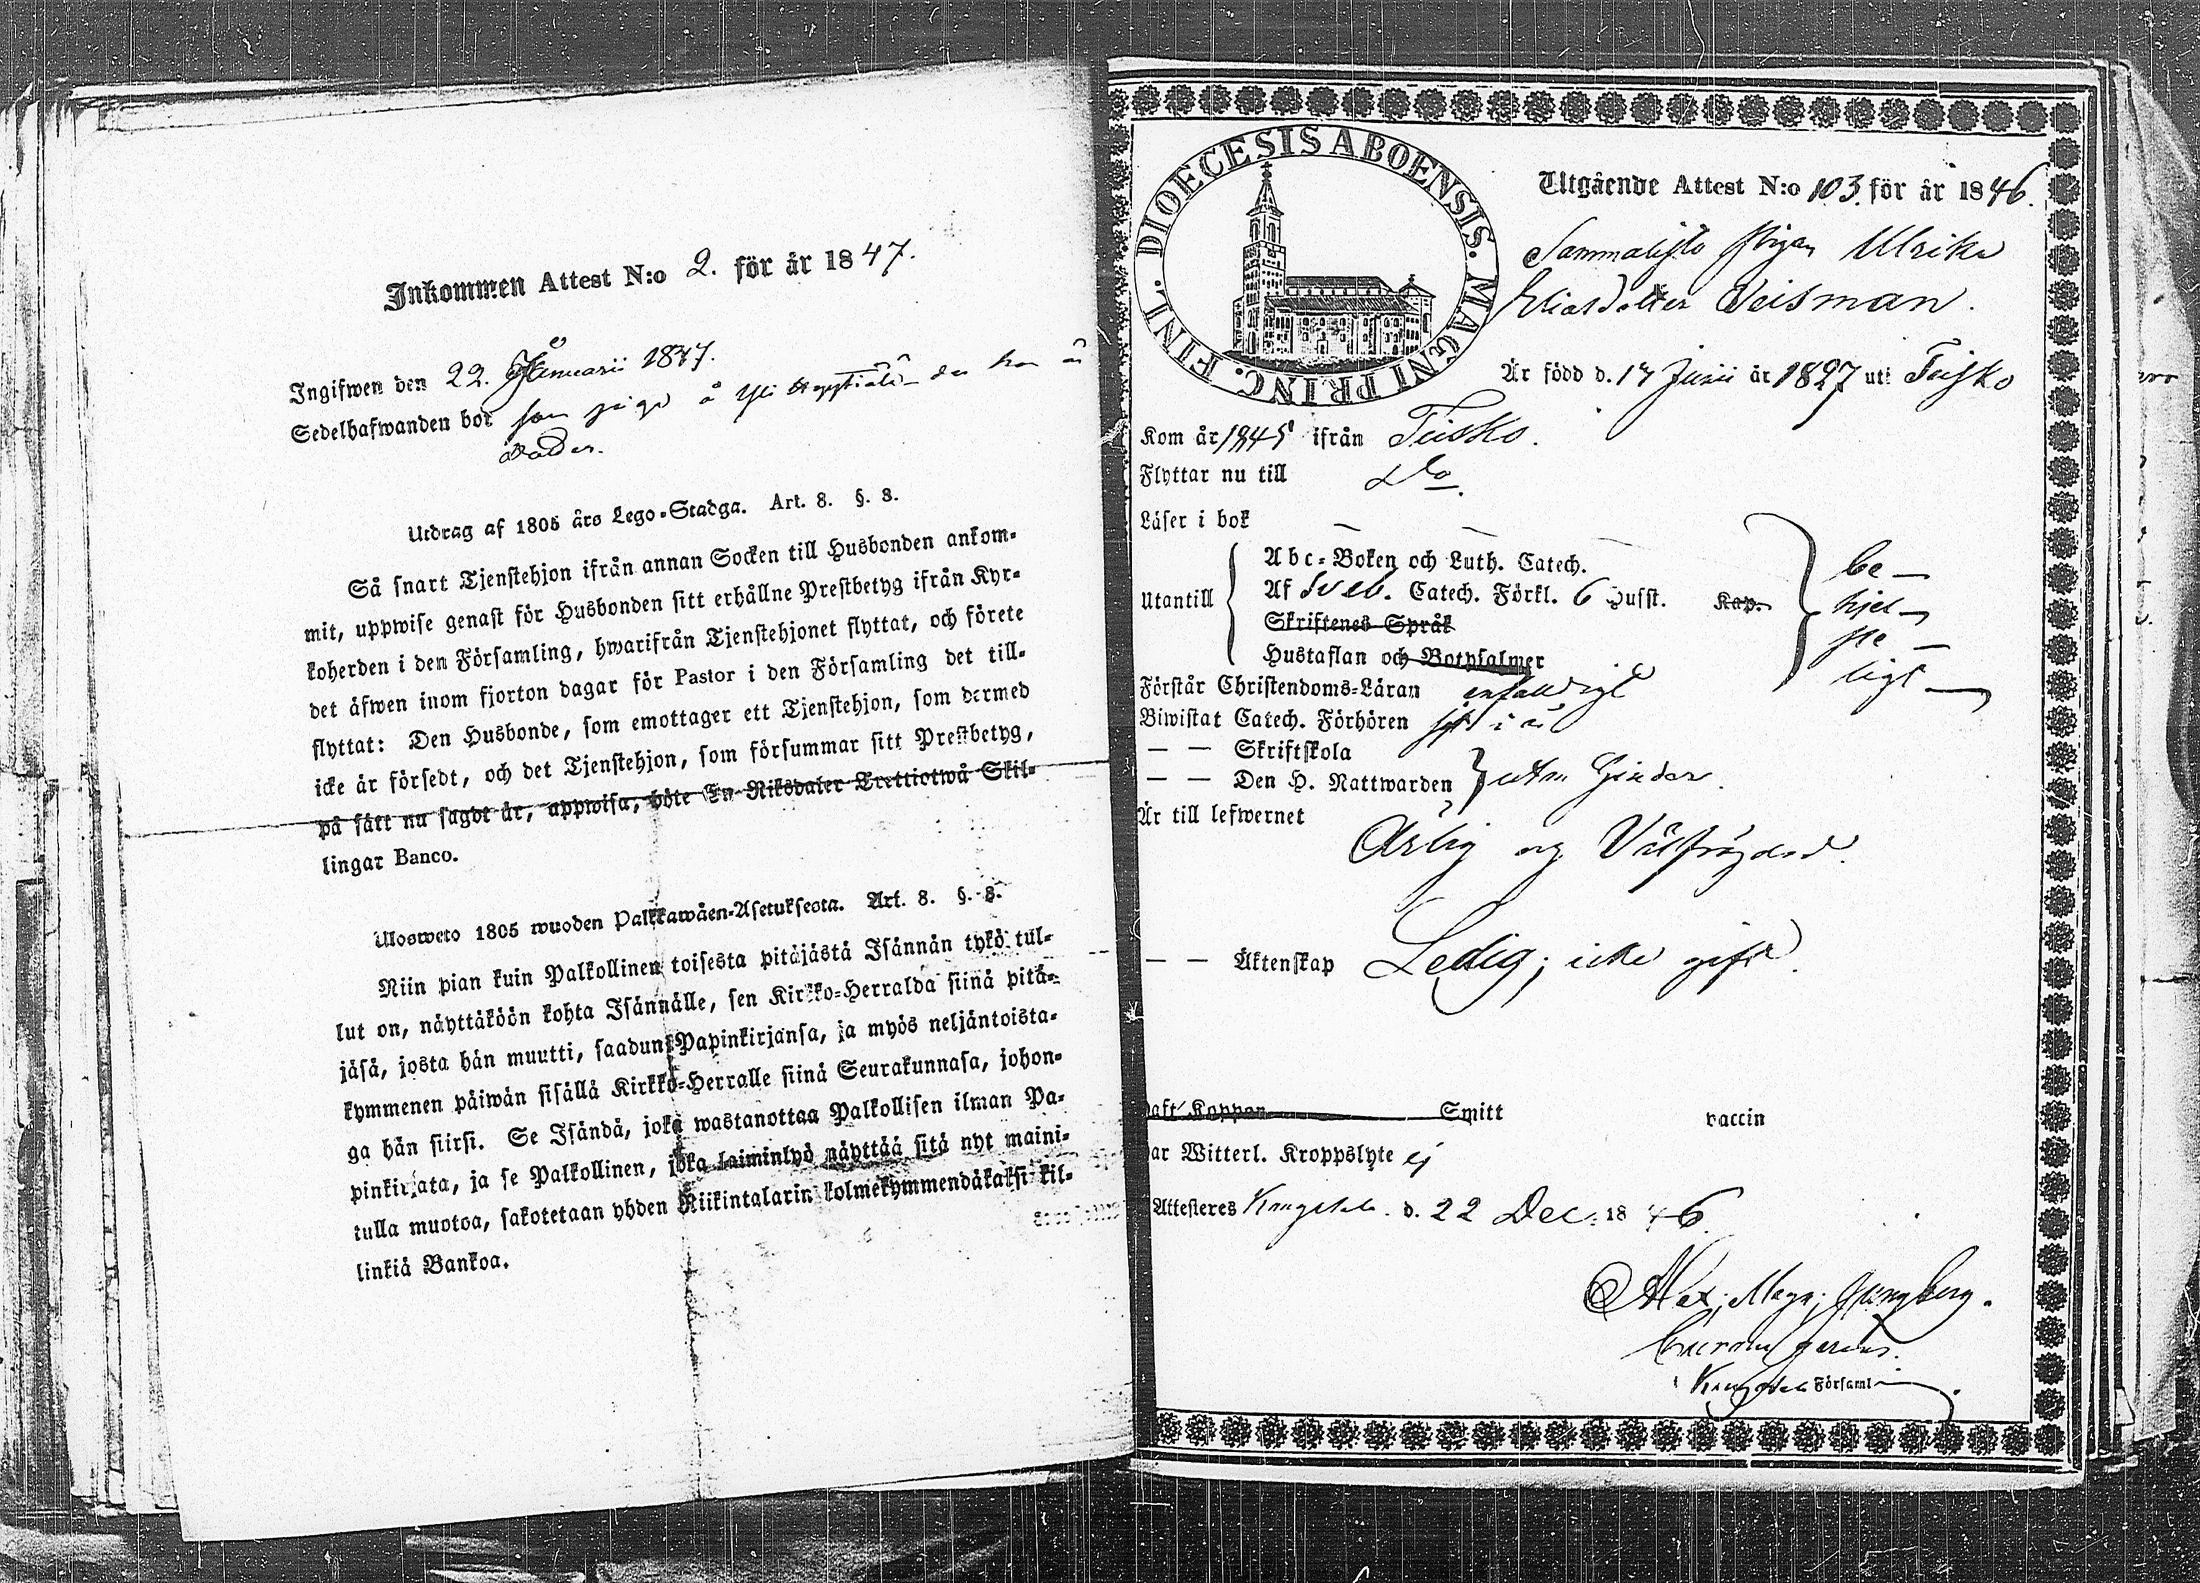 Inkommen Attest N:o 2. för år 1847.
Ingifwen den 22. Januarii 1847.
Sedelhafwanden bor som piga å Yli
Utdrag af 1805 års Lego-Stadga. Art. 8. §. 8.
Så snart Tjenstehjon ifrån annan Socken till Husbonden ankom-
mit, uppwise genast för Husbonden sitt erhållne Prestbetyg ifrån Kyr-
koherden i den Församling, hwarifrån Tjenstehjonet flyttat, och förete
det äfwen inom fjorton dagar för Pastor i den Församling det till-
flyttat: Den Husbonde, som emottager ett Tjenstehjon, som dermed
icke är försedt, och det Tjenstehjon, som försummar sitt Prestbetyg,
på sätt nu sagdt är, uppwisa, böte En Riksdaler Trettiotwå Skil-
lingar Banco.
Ulosweto 1805 wuoden Palkkawäen-Asetuksesta. Art. 8. §. 8.
Niin pian kuin Palkollinen toisesta pitäjästä Isännän tykö tul-
lut on, näyttäköön kohta Isännälle, sen Kirkko-Herralda siinä pitä-
jäsä, josta hän muutti, saadun Papinkirjansa, ja myös neljäntoista-
kymmenen päiwän sisällä Kirkko-Herralle siinä Seurakunnasa, johon-
ga hän siirsi. Se Isändä, joka wastanottaa Palkollisen ilman Pa-
pinkirjata, ja se Palkollinen, joka laiminlyö näyttää sitä nyt maini-
tulla muotoa, sakotetaan yhden Riikintalarin kolmekymmendäkaksi kil-
linkiä Bankoa.
DIOECESIS ABOENSIS. MAGNI PRINC. FINL.
Utgående Attest N:o 103. för år 1846.
pigan Ulrika
Eliasdotter Weisman.
Är född d. 17 Junii år 1827 uti Teisko
Kom år 1845 ifrån Teisko.
Flyttar nu till Do.
Läser i bok
Abc-Boken och Luth. Catech.
Utantill
Af Sveb. Catech. Förkl. 6 Husst. Kap.
Skriftenes Språk
Hustaflan och Botpsalmer
be-
hjel-
pe-
ligt
Förstår Christendoms-Läran enfaldigt
Biwistat Catech. Förhören sist i år
— — Skriftskola
— — Den H. Nattwarden } utan hinder.
Är till lefwernet
Ärlig og Välfrägdad.
— — Äktenskap Ledig; icke gift.
haft Koppor Smitt vaccin
Har Witterl. Kroppslyte ej
Attesteres Kangasala. d. 22 Dec. 1846.
Alex. Magn. Ljungberg.
Kangasala Församl.